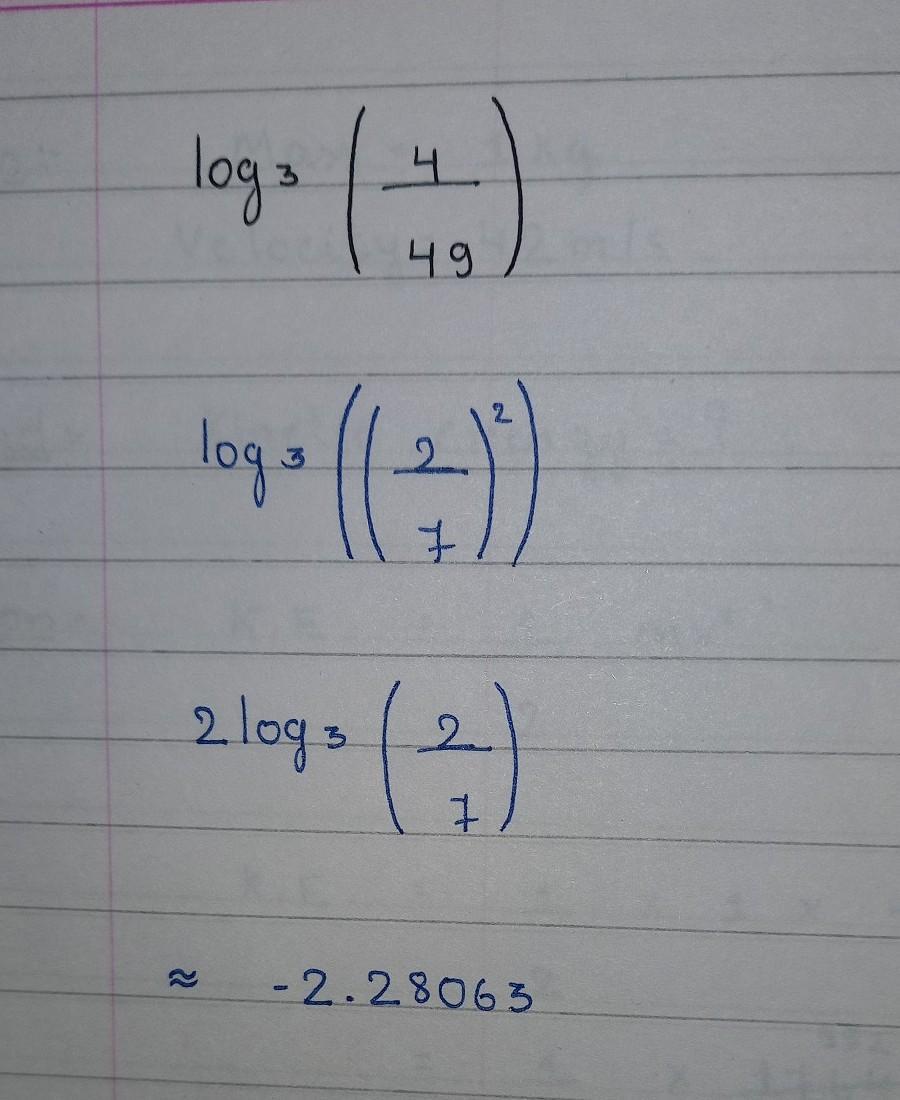 log₃ (4/49)
log₃ ((2/7)²)
2log₃ (2/7)
≈ -2.28063